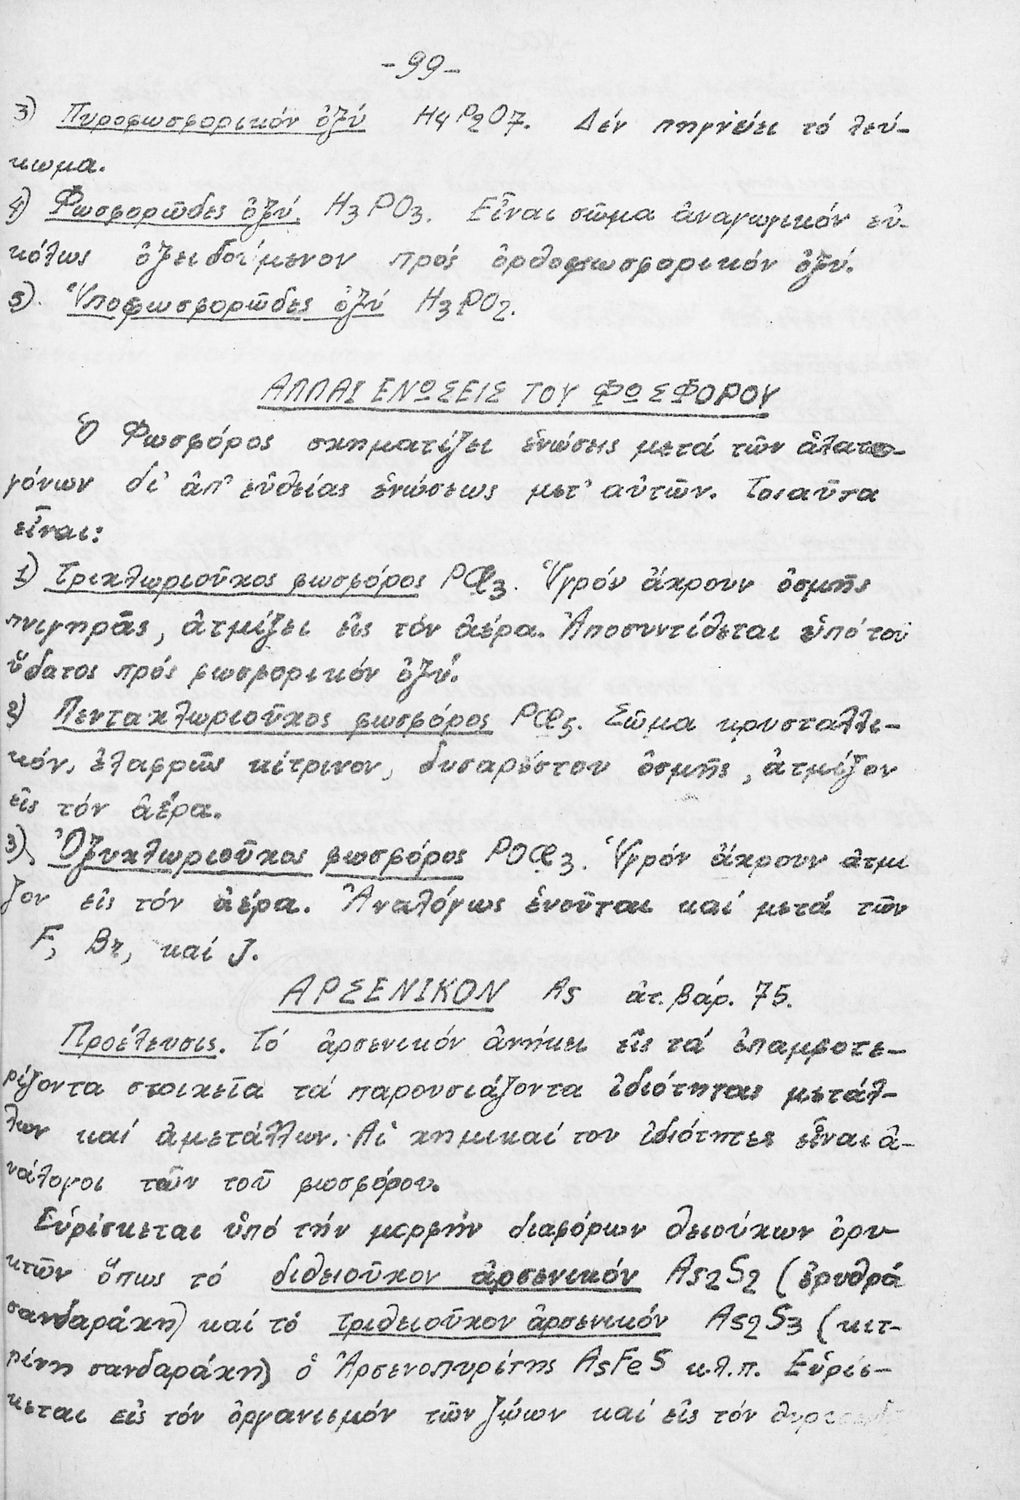 -99-
3) Πυροφωσφορικόν ὀξύ H4P2O7. Δέν πηγνύει τό λεύ-
κωμα.
4) Φωσφορῶδες ὀξύ. H3PO3. Εἶναι σῶμα ἀναγωγικόν εὐ-
κόλως ὀξειδούμενον πρός ὀρθοφωσφορικόν ὀξύ.
5). Ὑποφωσφορῶδες ὀξύ H3PO2.
ΑΛΛΑΙ ΕΝΩΣΕΙΣ ΤΟΥ ΦΩΣΦΟΡΟΥ
Ὁ Φωσφόρος σχηματίζει ἑνώσεις μετά τῶν ἁλατο-
γόνων δι' ἀπ' εὐθείας ἑνώσεως μετ' αὐτῶν. Τοιαῦτα
εἶναι:
1) Τριχλωριοῦχος φωσφόρος PCl3. Ὑγρόν ἄχρουν ὀσμῆς
πνιγηρᾶς, ἀτμίζει εἰς τόν ἀέρα. Ἀποσυντίθεται ὑπό του
ὕδατος πρός φωσφορικόν ὀξύ.
2) Πενταχλωριοῦχος φωσφόρος PCl5. Σῶμα κρυσταλλι-
κόν, ἐλαφρῶς κίτρινον, δυσαρέστου ὀσμῆς, ἀτμίζον
εἰς τόν ἀέρα.
3). Ὀξυχλωριοῦχος φωσφόρος POCl3. Ὑγρόν ἄχρουν ἀτμι
ζον εἰς τόν ἀέρα. Ἀναλόγως ἑνοῦται καί μετά τῶν
F, Br, καί J.
ΑΡΣΕΝΙΚΟΝ As ἀτ. βάρ. 75.
Προέλευσις. Τό ἀρσενικόν ἀνήκει εἰς τά ἐπαμφοτε-
ρίζοντα στοιχεῖα τά παρουσιάζοντα ἰδιότητας μετάλ-
λων καί ἀμετάλλων. Αἱ χημικαί του ἰδιότητες εἶναι ἀ-
νάλογοι τῶν τοῦ φωσφόρου.
Εὑρίσκεται ὑπό τήν μορφήν διαφόρων θειούχων ὀρυ-
κτῶν ὅπως τό διθειοῦχον ἀρσενικόν As2S2 (ἐρυθρά
σανδαράκη) καί τό τριθειοῦχον ἀρσενικόν As2S3 (κιτ-
ρίνη σανδαράκη) ὁ Ἀρσενοπυρίτης AsFeS κ.λ.π. Εὑρίσ-
κεται εἰς τόν ὀργανισμόν τῶν ζώων καί εἰς τόν